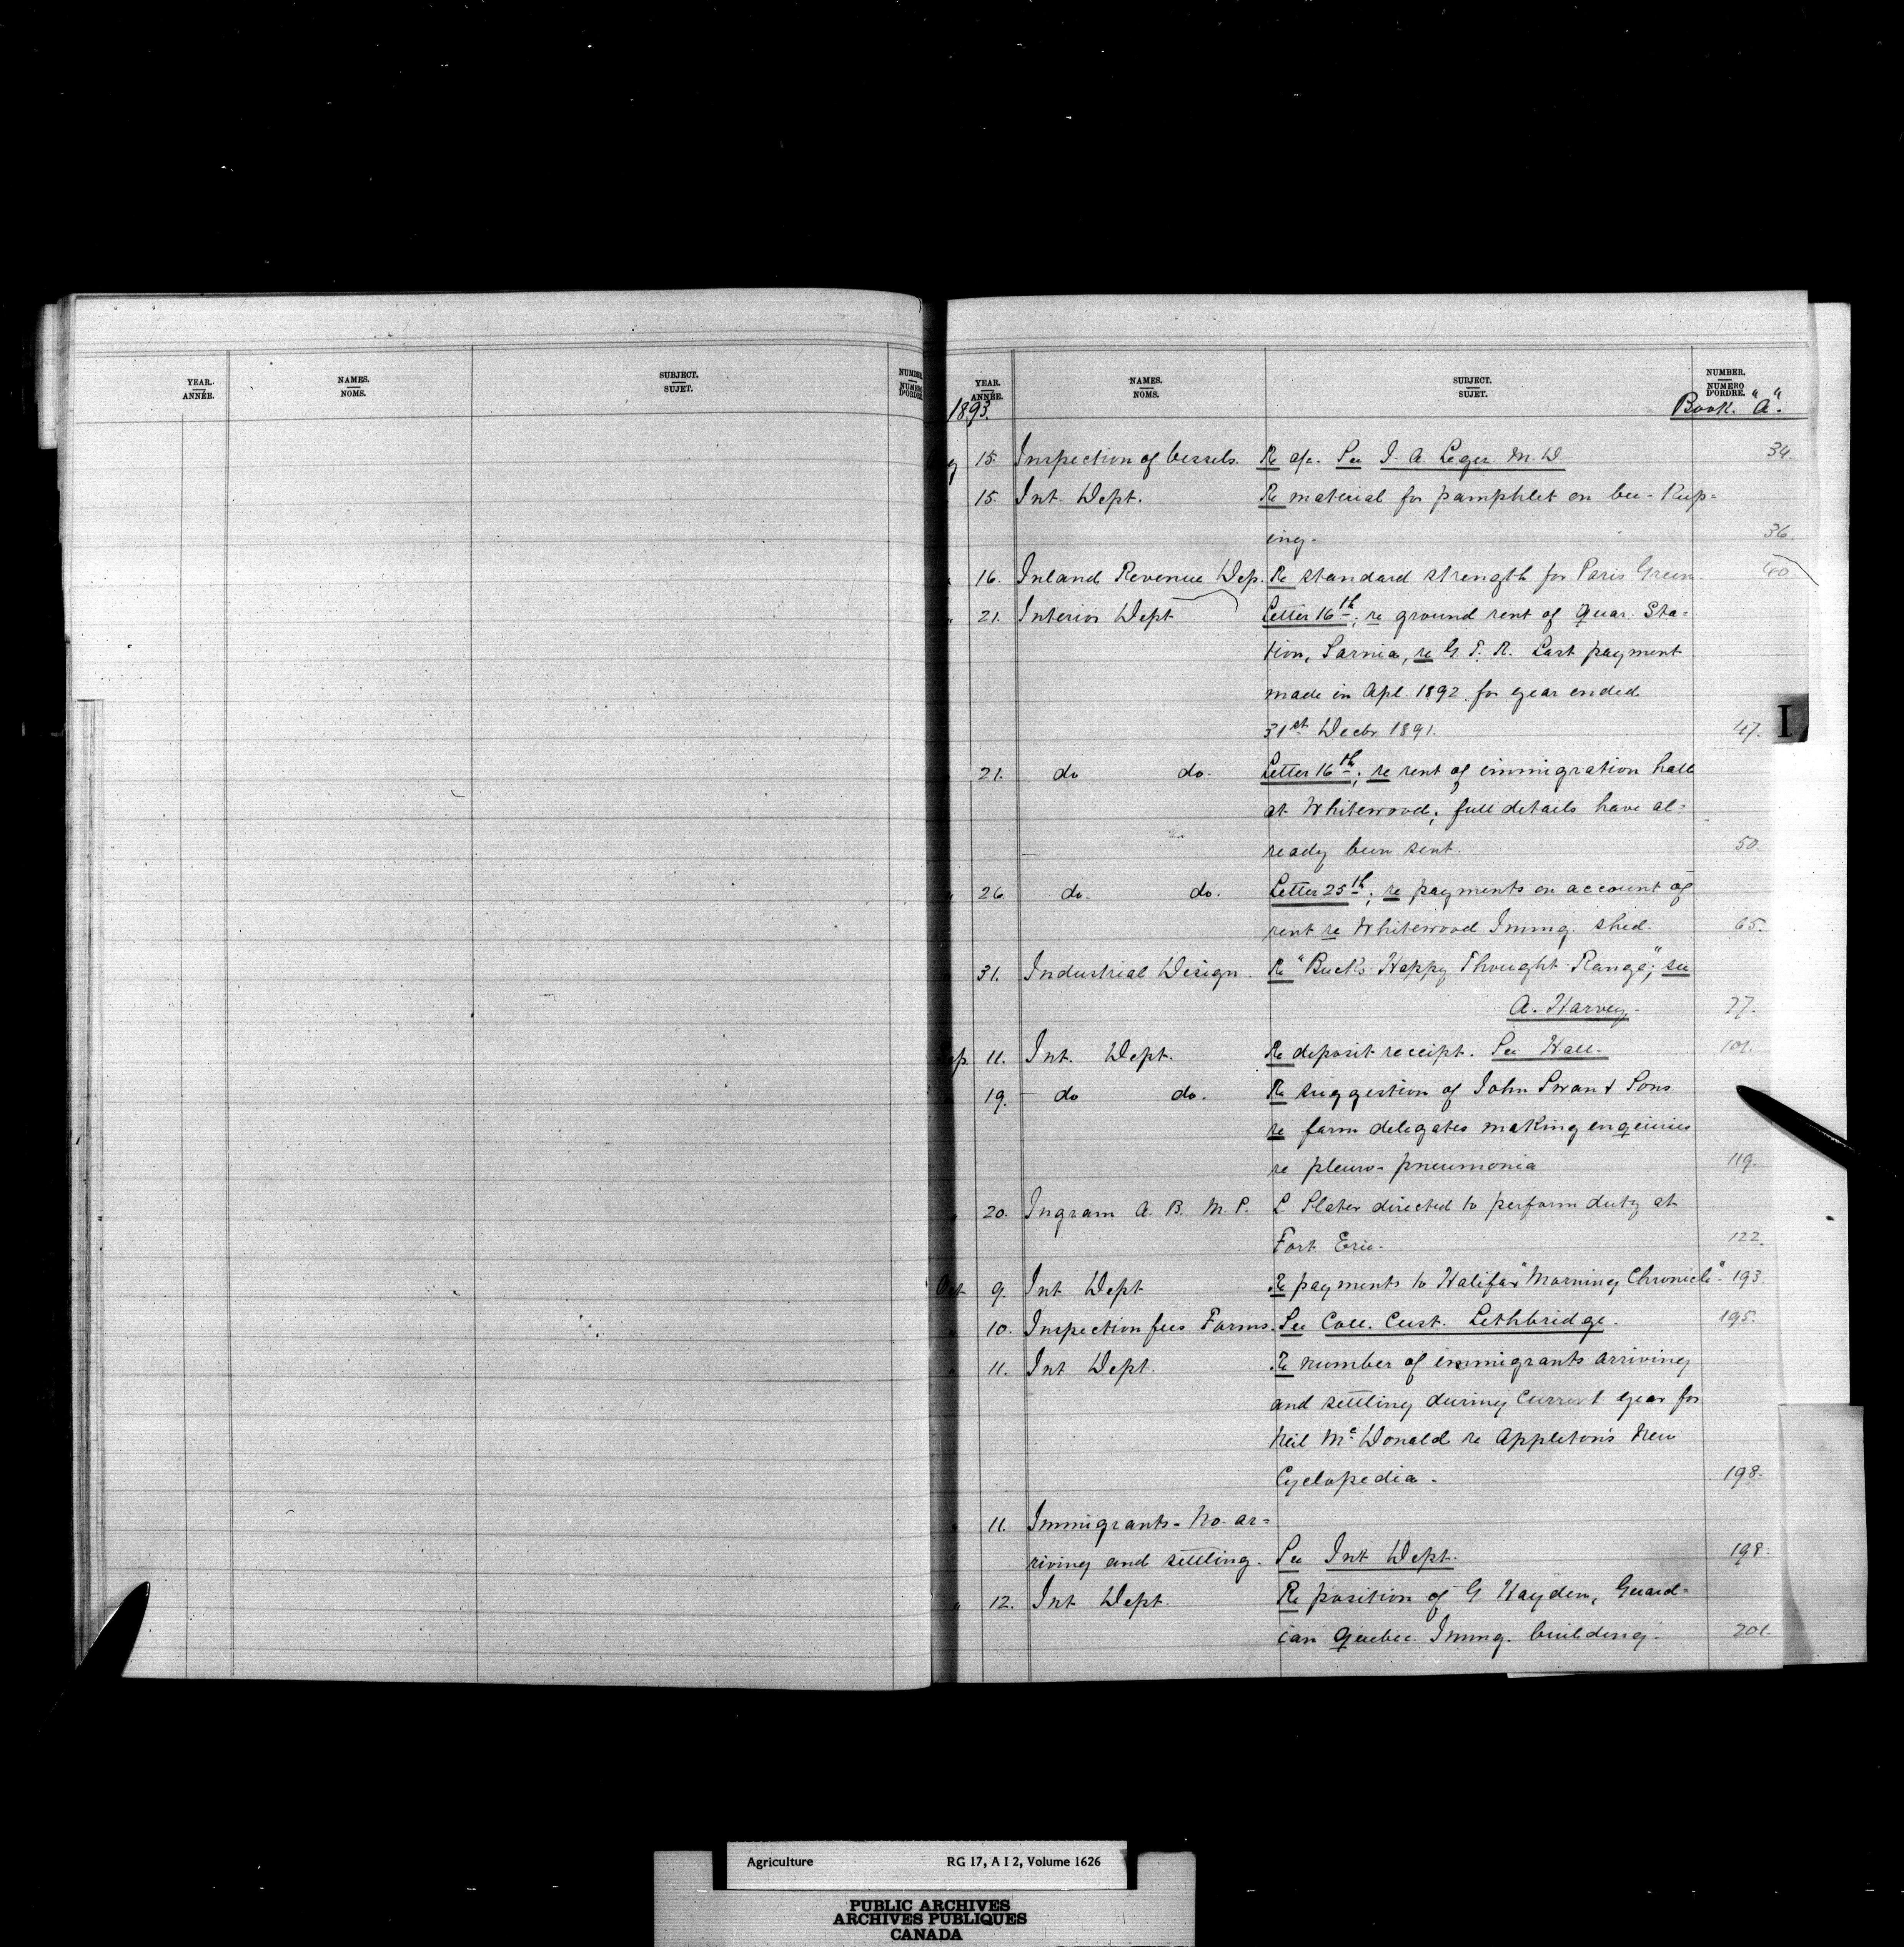 YEAR.
ANNÉE.
NAMES.
NOMS.
SUBJECT.
SUJET.
NUMBER
NUMERO
D'ORDRE
YEAR.
ANNÉE.
NAMES.
NOMS.
SUBJECT.
SUJET.
NUMBER.
NUMERO
D'ORDRE.
1893. Book. "A".
15. Inspection of Vessels. Re a/c. See J. A. Leger M.D 34.
15. Int. Dept. Re material for pamphlet on bee-Keep=
ing. 36.
16. Inland Revenue Dep. Re standard strength for Paris Green. 40.
" 21. Interior Dept Letter 16th; re ground rent of Quar. Sta=
tion, Sarnia, re G. T. R. Last payment
made in Apl. 1892 for year ended
31st Decbr 1891. 47.
I
21. do do. Letter 16th; re rent of immigration hall
at Whitewood; full details have al=
ready been sent. 50.
" 26 do. do. Letter 25th; re payments on account of
rent re Whitewood Immig. shed. 65.
31. Industrial Design. Re "Buck's Happy Thought Range"; see
A. Harvey. 77.
Sep. 11. Int. Dept. Re deposit receipt. See Hall. 101.
19. do do. Re suggestion of John Swan & Sons
re farm delegates making enqeiries
re pleuro-pneumonia 119.
" 20. Ingram A. B. M. P. L. Slater directed to perform duty at
Fort Erie. 122.
Oct 9. Int Dept Re payments to Halifax "Morning Chronicle". 193.
" 10. Inspection fees Forms. See Coll. Cust. Lethbridge. 195.
" 11. Int Dept. Re number of immigrants arriving
and settling during current year for
Neil McDonald re Appleton's New
Cyclopedia. 198.
" 11. Immigrants - No. ar=
riving and settling. See Int Dept. 198.
" 12. Int Dept. Re position of G. Hayden, Guard=
ian Quebec Immg. building. 201.
Agriculture RG 17, A I 2, Volume 1626
PUBLIC ARCHIVES
ARCHIVES PUBLIQUES
CANADA